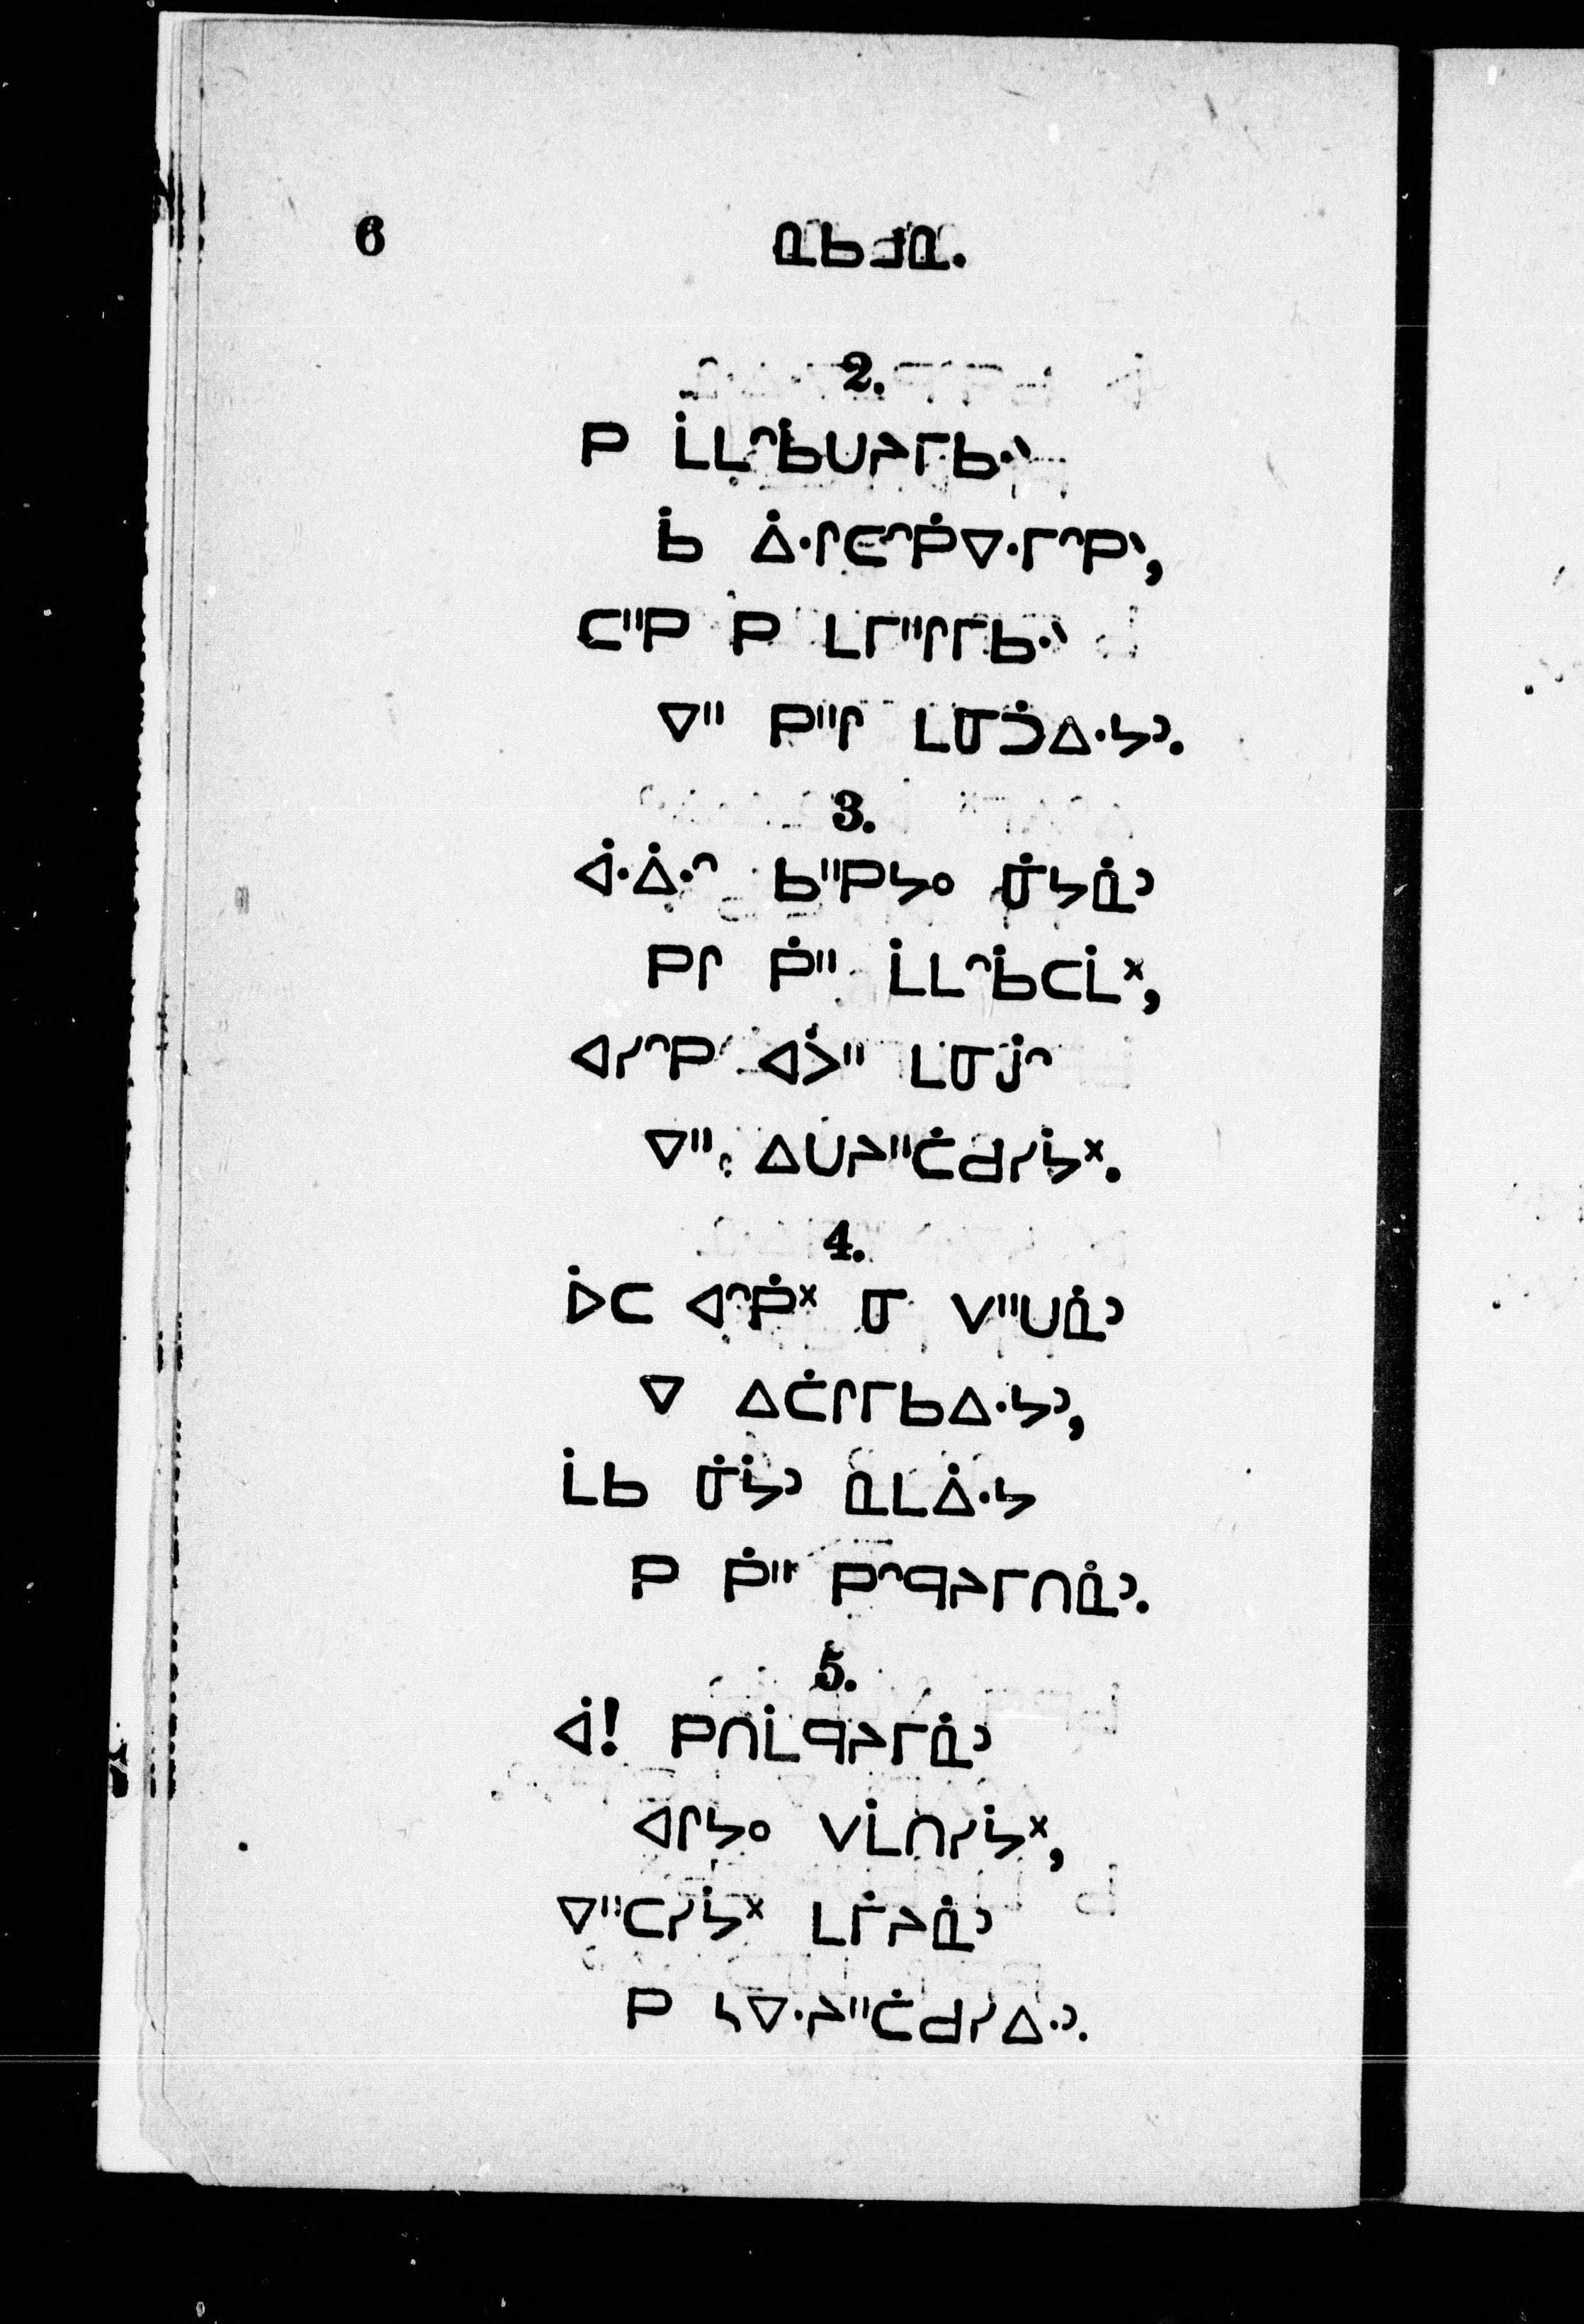 6 ᓇᑲᒧᓇ.
2.
ᑭ ᒫᒪᐢᑳᑌᔨᒥᑲᐧᐠ
ᑳ ᐄᐧᒋᕮᐢᑮᐁᐧᒥᐢᑭᐠ,
ᑕᐦᑭ ᑭ ᒪᒥᐦᒋᒥᑲᐧᐠ
ᐁᐦ ᑭᐦᒋ ᒪᓂᑑᐃᐧᔭᐣ.
3.
ᐚᐄᐧᐢ ᑲᐦᑭᔭᐤ ᓃᔭᓈᐣ
ᑭᒋ ᑮᐦ ᒫᒪᐢᑳᑕᒫᕽ,
ᐊᓯᐢᑭ ᐊᐴᐦ ᒪᓂᒎᐢ
ᐁᐦ ᐃᑌᔨᐦᑖᑯᓯᔮᕽ.
4.
ᐆᑕ ᐊᐢᑮᕽ ᓂ ᐯᐦᑌᓈᐣ
ᐁ ᐃᑖᒋᒥᑲᐃᐧᔭᐣ,
ᒫᑲ ᓃᔮᐣ ᓇᒪᐄᐧᔭ
ᑭ ᑮᐦ ᑭᐢᑫᔨᒥᑎᓈᐣ.
5.
ᐋ! ᑭᑎᒫᑫᔨᒥᓈᐣ
ᐊᒋᔭᐤ ᐯᒫᑎᓯᔮᕽ,
ᐁᐦᑕᓯᔮᕽ ᒪᒦᔨᓈᐣ
ᑭ ᓴᐁᐧᔨᐦᑖᑯᓯᐃᐧᐣ.